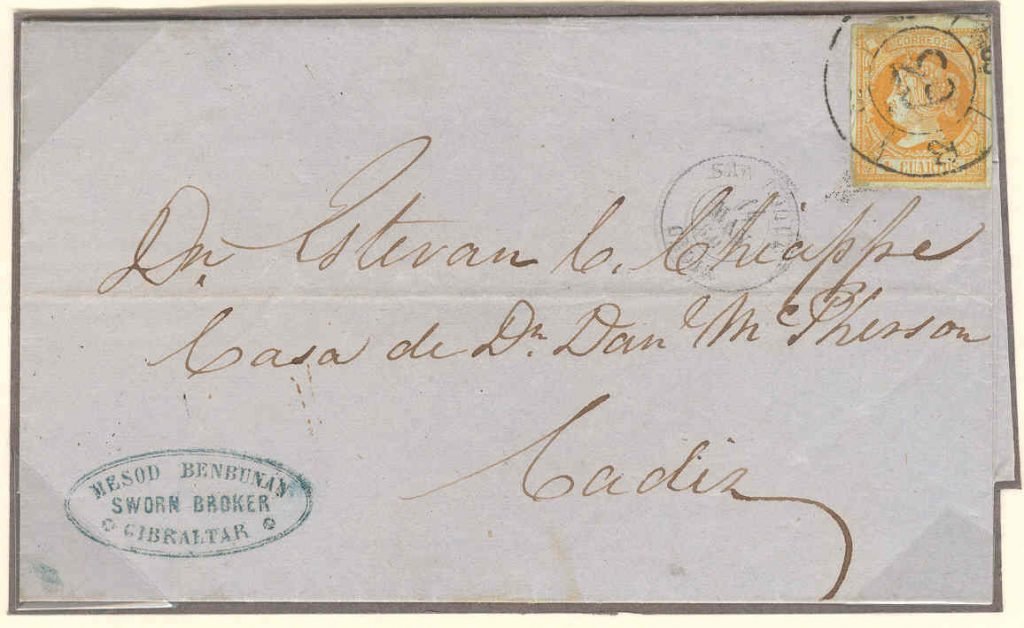 CORREOS
CUARTOS
SAN
Dn. Estevan C. Chiappe
Casa de Dn. Danl McPherson
Cadiz
MESOD BENBUNAN
SWORN BROKER
GIBRALTAR